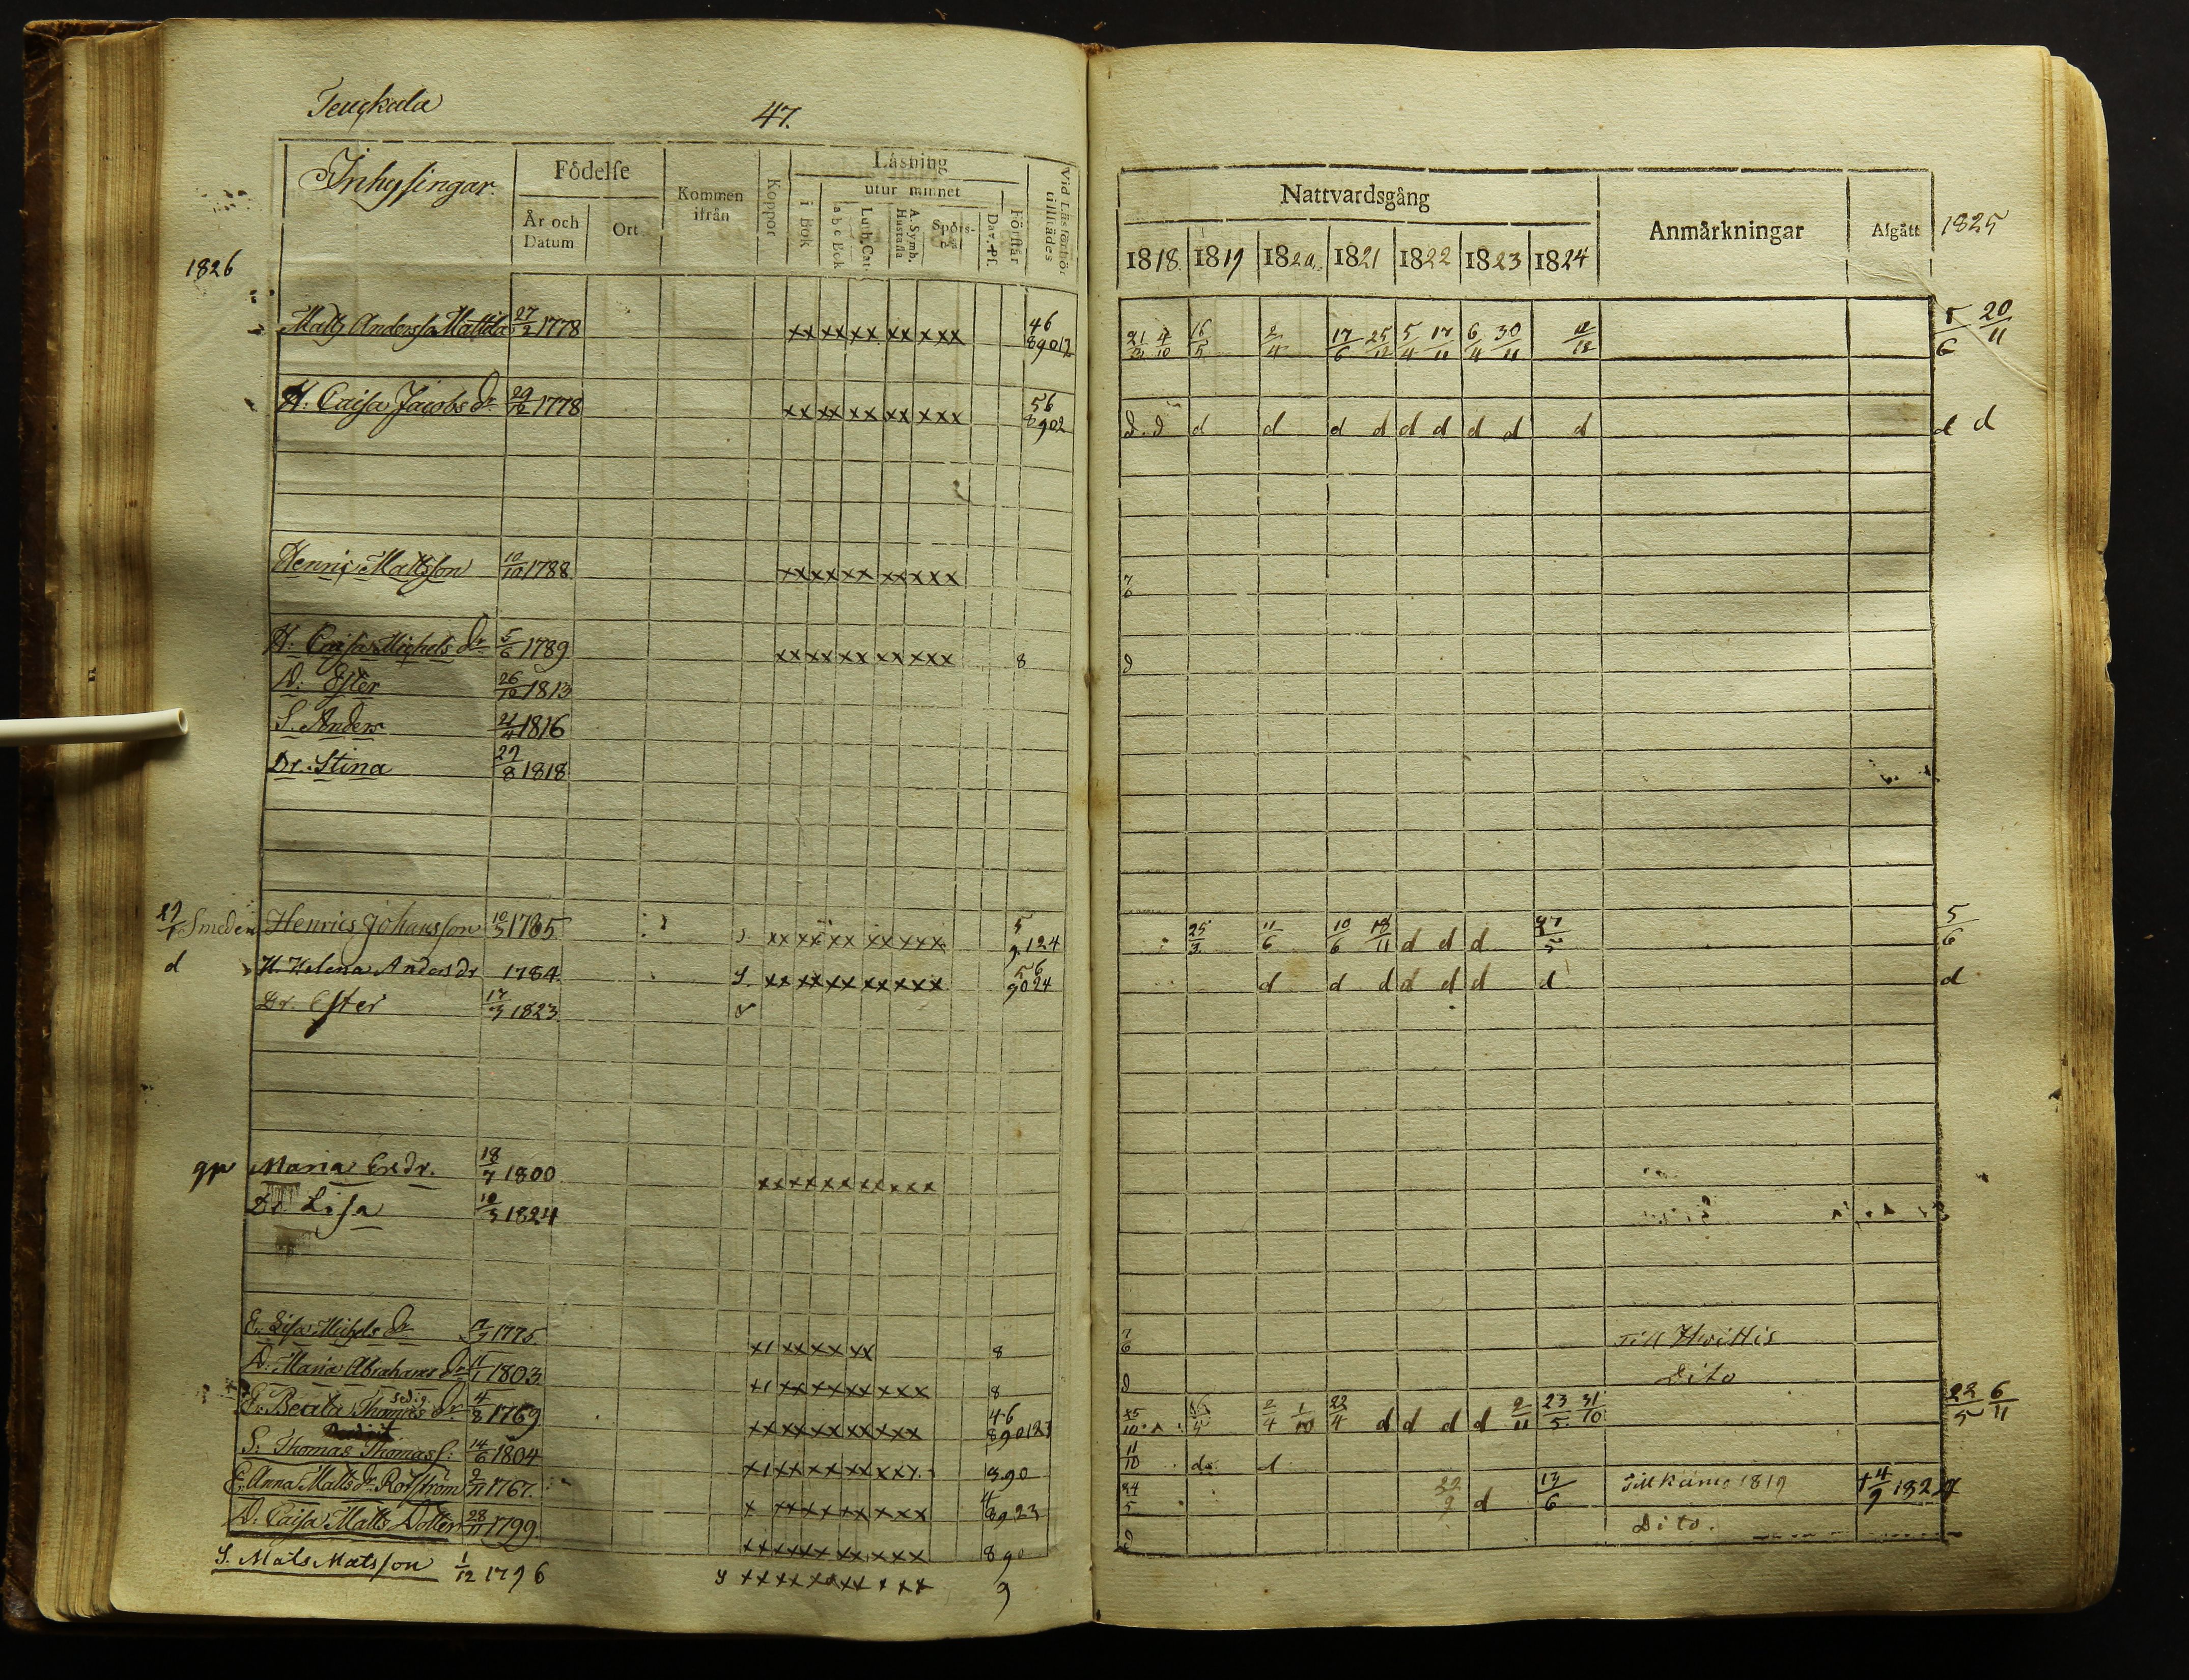 47.
Inhysingar.
Födelse
År och Datum
Ort
Kommen ifrån
Koppor
Läsning
i Bok
utur minnet
a b c Bok
Luth. Cat.
A. Symb. Hustafla
Spörsmål
Dav. Ps.
Förstår
Vid Läsförhör tillstädes
1826
Matts Anderss. Mattila 27/2 1778 xx xx xx xx xxx 46
89012
H. Caisa Jacobs Dr 29/10 1778 xx xx xx xx xxx 56
8902
Henric Mattsson 10/10 1788 xx xx xx xx xxx
H. Caisa Michels Dr 5/6 1789 xx xx xx xx xxx 8
D. Ester 26/10 1813
S. Anders 21/4 1816
Dr. Stina 29/8 1818
Smeden Henrics Johansson 10/3 1785 xx xx xx xx xxx 5
9124
d H. Helena Anders dr 1784 xx xx xx xx xxx 56
9024
Dr. Ester 17/3 1823
Maria Er.dr. 18/7 1800 xx xx xx xx xxx
Dr Lisa 10/3 1824
E. Lisa Michels Dr 1775 x1 xx xx xx 8
D. Maria Abrahams Dr 1803 x1 xx xx xx xxx 8
E. Beata Thomes Dr 4/8 1769 xx xx xx xx xxx 46
890123
S. Thomas Thomass: 14/6 1804 890
E. Anna Matts Dr Rosström 2/11 1767 4
8923
D. Caisa Matts Dotter 28/11 1799 xx xx xx xx xxx 890
S. Mats Matsson 1/12 1796 9
Nattvardsgång
1818. 1819 1820. 1821 1822 1823 1824
Anmärkningar
Afgått
1825
16/5 2/4 17/6 25/12 5/4 17/11 6/4 30/11 20/11
d. d d d d d d d d d d d d
7/6
d
25/3 11/6 10/6 18/11 d d d 27/5 5/6
d d d d d d d d
7/6 Till Hvittis
d Dito
25/10 2/4 1/10 22/4 d d d d 2/11 23/5 31/10 22/5 6/11
11/10 d d
24/5 22/9 d 13/6 Till Kumo 1819 † 4/9 182
d Dito.